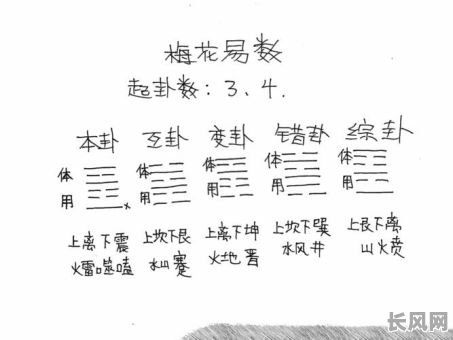 梅花易数
超卦数：3、4.
本卦 互卦 变卦 错卦 综卦
体 体 体 体 体
用 用 用 用 用
上离下震 上坎下艮 上离下坤 上坎下巽 上艮下离
火雷噬嗑 水山蹇 火地晋 水风井 山火贲
长风网